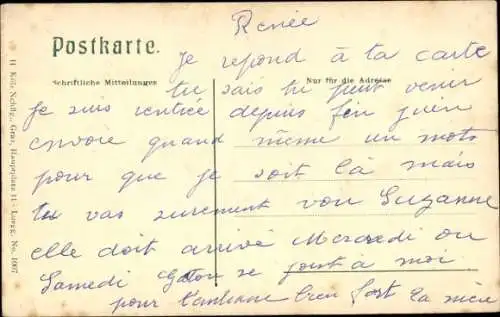 Renée
Postkarte.
Je repond à ta carte
Schriftliche Mitteilungen
Nur für die Adresse
tu sais tu peut venir
Je suis rentrée depuis
envoie quand même un mots
pour que je soit là mais
tu vas surement voir Suzanne
elle doit arrivé Mercredi ou
Samedi se joint à moi
pour bien fort
Graz, Hauptplatz 11 - Luegg. No. 1007